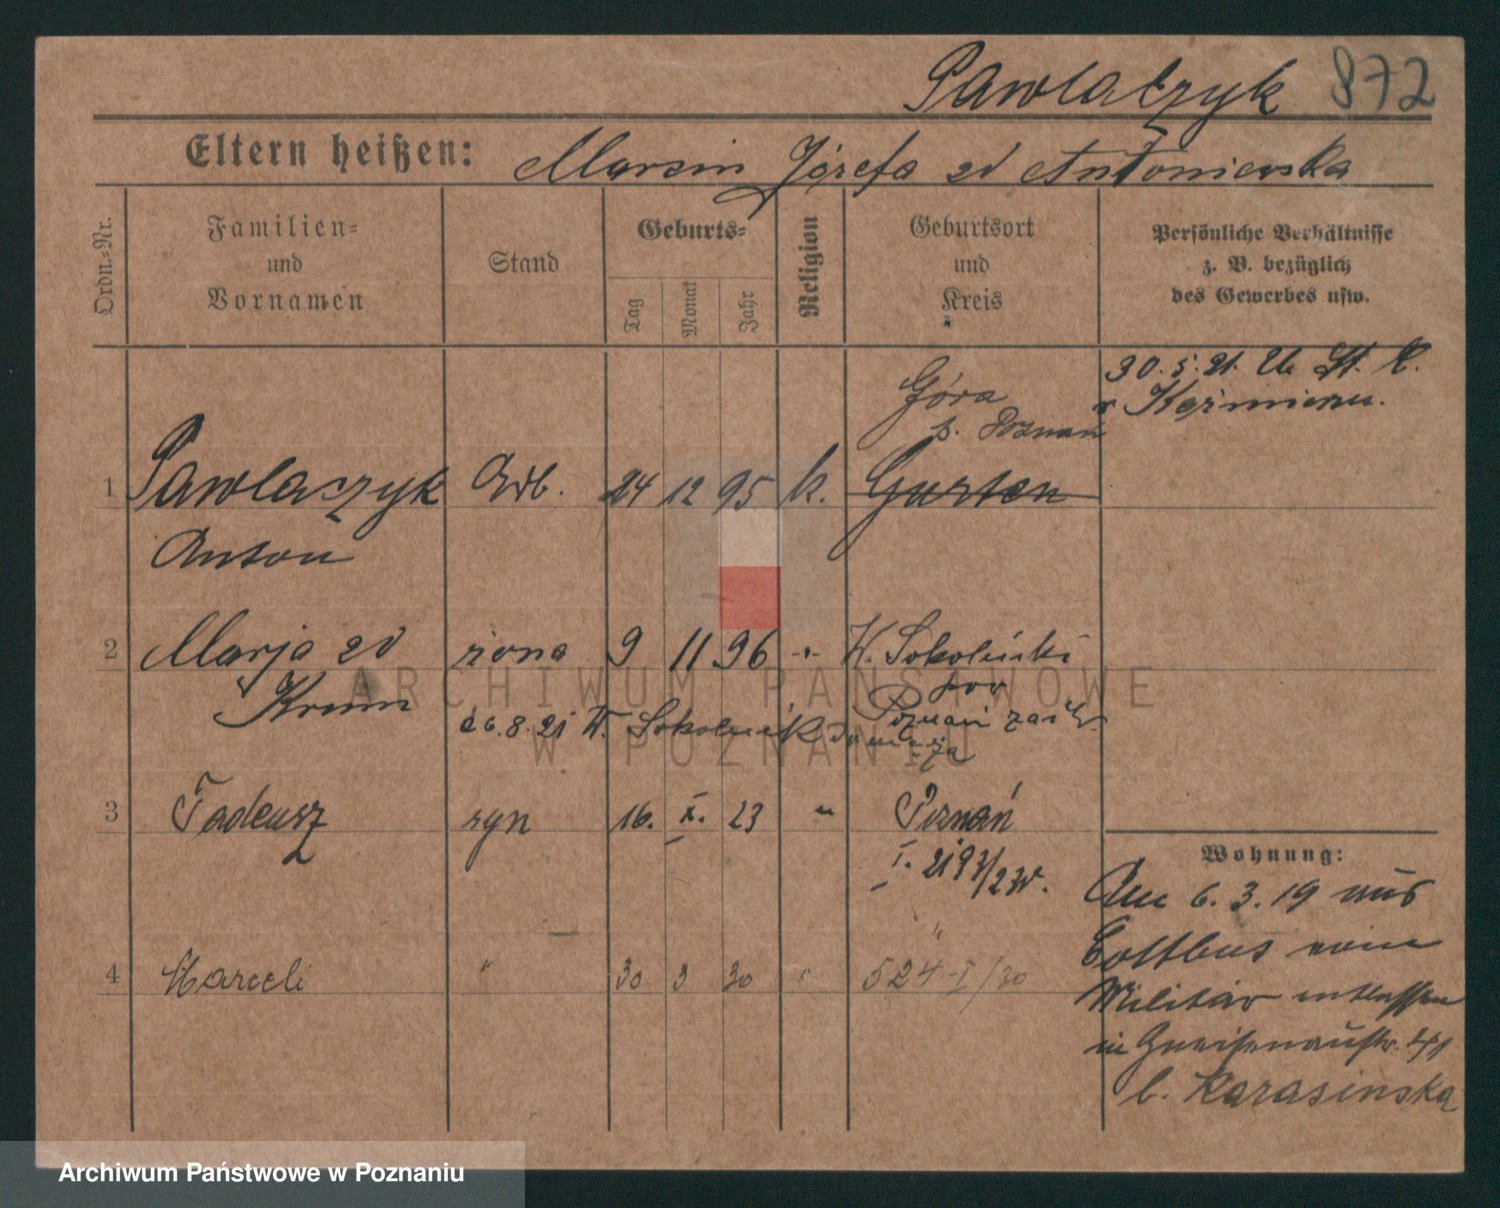 Pawlaczyk 872
Eltern heißen: Marcin Józefa zd Antoniewska
Ordn.-Nr.
Familien-
und
Vornamen
Stand
Geburts-
Tag
Monat
Jahr
Religion
Geburtsort
und
Kreis
Persönliche Verhältnisse
z. B. bezüglich
des Gewerbes usw.
Góra
p. Poznań
30.5.21. U. St. C.
w Kaźmierzu.
1 Pawlaczyk Arb. 24 12 95 k. Gurten
Anton
2 Marja zd żona 9 11 96 -"- W. Sokolniki
Krum
pow
26.8.21 W. Sokolnik
Poznań zach.
Tadeusz
3 syn 16. X. 23 " Poznań
I. 2193/23
4 Marceli " 30 3 30 " 524-I/30
Wohnung:
Am 6.3.19 aus
Cottbus vom
Militär entlassen
in Gneisenaustr. 41
b. Karasinska
ARCHIWUM PAŃSTWOWE
W POZNANIU
Archiwum Państwowe w Poznaniu